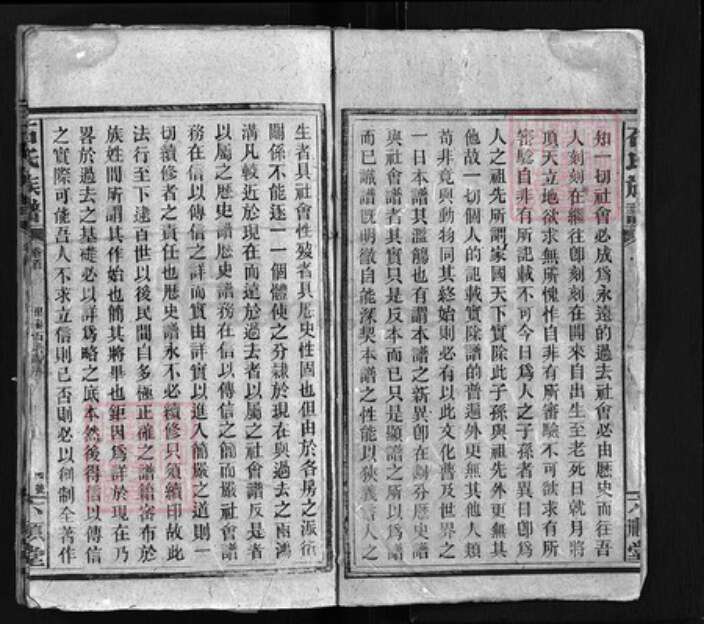 知一切社會必成爲永遠的過去社會必由歷史而往吾
人刻刻在繼往卽刻刻在開來自出生至老死日就月將
頂天立地欲求無所愧怍自非有所審驗不可欲求有所
審驗自非有所記載不可今日爲人之子孫者異日卽爲
人之祖先所謂家國天下實除此子孫與祖先外更無其
他故一切個人的記載實除譜的普遍外更無其他人類
苟非竟與動物同其終始則必有以此文化普及世界之
一日本譜其濫觴也有謂本譜之新異卽在劃分歷史譜
與社會譜者其實只是反本而已只是顯譜之所以爲譜
而已識譜既明徵自能深契本譜之性能以狹義言人之
生者具社會性歿者具歷史性固也但由於各房之派衍
關係不能逐一一個體使之分隸於現在與過去之兩鴻
溝凡較近於現在而遠於過去者以屬之社會譜反是者
以屬之歷史譜歷史譜務在信以傳信之簡而嚴社會譜
務在信以傳信之詳而實由詳實以進入簡嚴之道則一
切續修者之責任也歷史譜永不必續修只須續印故此
法行至下逮百世以後民間自多極正確之譜牒審布於
族姓間所謂其作始也簡其將畢也鉅因爲詳於現在乃
畧於過去之基礎必以詳爲略之底本然後得信以傳信
之實際可能吾人不求立信則已否則必以創制全著作
石氏族譜
卷首
六順堂